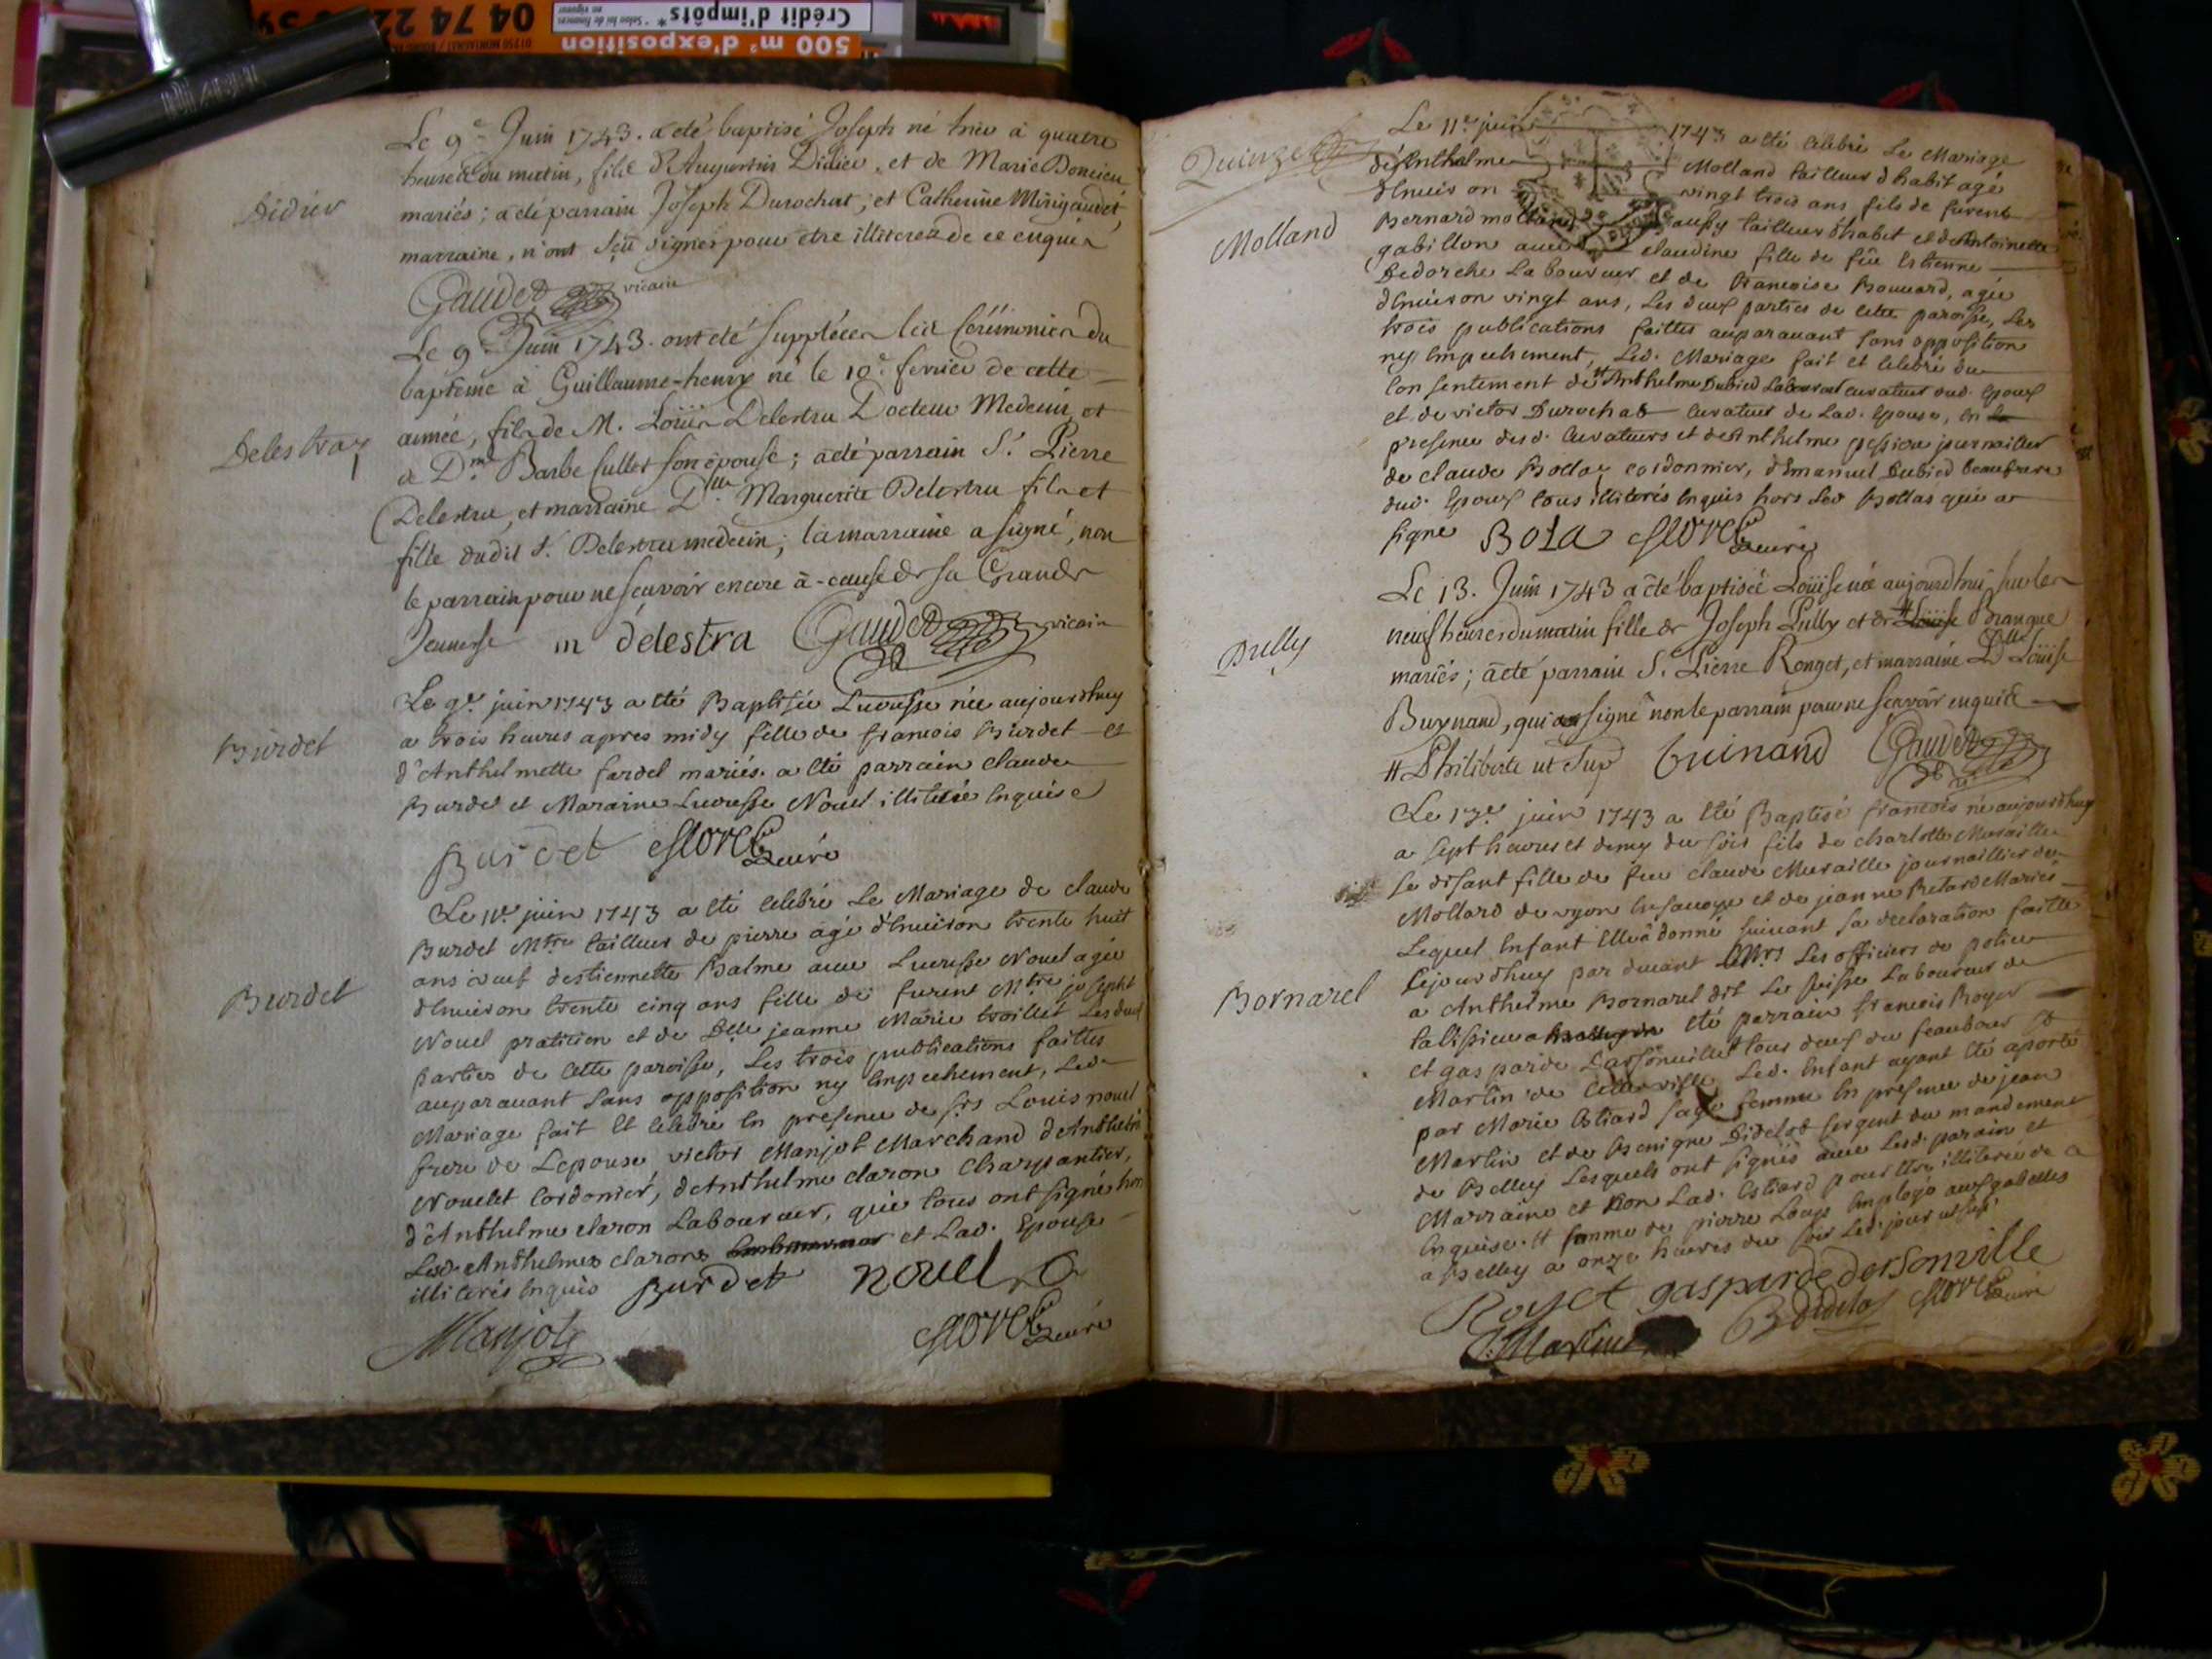 Crédit d'impôts*
500 m² d'exposition
04 74 22
Le 9e Juin 1743. a été baptisé Joseph né hier à quatre
heures du matin, fils d'Augustin Didier, et de Marie
Didier
mariés; a été parrain Joseph Durochat; et Catherine
marraine, n'ont sçu signer pour être illiterez de ce enquis
Gaudet vicaire
Le 9e Juin 1743. ont été suppléées les Cérémonies du
baptême à Guillaume-henry né le 10e fevrier de cette
année, fils de M. Loüis Delestra Docteur Medecin, et
Delestraz
de D. Barbe Cullet son épouse; a été parrain Sr. Pierre
Delestra, et marraine Dlle Marguerite Delestra fils et
fille dudit S. Delestra medecin; la marraine a signé, non
le parrain pour ne sçavoir encore à-cause de sa Grande
Jeunesse m delestra Gaudet vicaire
Le 9e juin 1743 a été Baptisée Lucresse née aujourdhuy
Burdet
a trois heures apres midy fille de francois Burdet et
d'Anthelmette fardel mariés. a été parrain claude
Burdet et Maraine Lucresse Nouel illiterée Enquise
Burdet curé
Le 11e juin 1743 a été celebré Le Mariage de claude
Burdet Mtre tailleur de pierre agé d'Environ trente huit
Burdet
ans veuf destiennette Balme avec Lucresse Nouel agée
d'Environ trente cinq ans fille de furent Mtre joseph
Nouel praticien et de Dlle jeanne Marie troillet Les deux
parties de cette paroisse, Les trois publications faittes
auparavant sans opposition ny Empechement, Led.
Mariage fait Et celebré En presence de srs Louis nouel
frere de Lepouse, victor Manjot Marchand d'Anthelme
Nouellet Cordonier, d'Anthelme claron charpantier,
d'Anthelme claron Laboureur, qui tous ont signé hors
Lesd. Anthelmes clarons et Lad. Epouse
illiterés Enquis Burdet nouel
Manjot curé
Le 11e juin 1743 a été celebré Le Mariage
d'Anthelme Molland tailleur d'habit agé
d'Environ vingt trois ans fils de furent
Molland
Bernard molland aussy tailleur d'habit et d'Antoinette
gabillon avec claudine fille de feu Estienne
Bedorche Laboureur et de francoise Bouvard, agée
d'Environ vingt ans, Les deux parties de cette paroisse, Les
trois publications faittes auparavant sans opposition
ny Empechement, Led. Mariage fait et celebré du
Consentement de Anthelme Dubied Laboureur curateur dud. Epoux
et de victor Durochat curateur de Lad. Epouse, En
presence desd. Curateurs et d'Anthelme pessieu journailler
de claude Bollaz cordonnier, d'Emanuel Dubied beaufrere
dud. Epoux tous illiterés Enquis hors Led Bollaz qui a
signé Bola curé
Le 13. Juin 1743 a été baptisée Loüise née aujourdhui sur les
neuf heures du matin fille de Joseph Pully et de Branque
Pully
mariés; a été parrain S. Pierre Ronget, et marraine Dlle Loüise
Buynand, qui a signé non le parrain pour ne sçavoir enquis
# Philiberte ut sup Buinand Gaudet
Le 17e juin 1743 a été Baptisé francois né aujourdhuy
a sept heures et demy du soir fils de charlotte Muraille
se disant fille de feu claude Muraille journaillier de
Mollard de vyon En savoye et de jeanne Retard Mariés
Lequel Enfant Elle a donné suivant sa declaration faitte
cejourdhuy par devant Mrs Les officiers de police
Bornarel
a Anthelme Bornarel dit Le suisse Laboureur de
talissieu a été parrain francois Royer
et gasparde tous deux du feaubour St
Martin de cette ville Led. Enfant ayant été aporté
par Marie Estiard sage femme En presence de jean
Martin et de Benigne Didelot sergent du mandement
de Belley Lesquels ont signés avec Lesd. parain et
Marraine et Non Lad. Estiard pour Etre illiterée de ce
Enquise. # femme de pierre Employé aux gabelles
a Belley a onze heures du soir Led. jour
Royet gasparde dersonville
J. Martin B Didelot curé